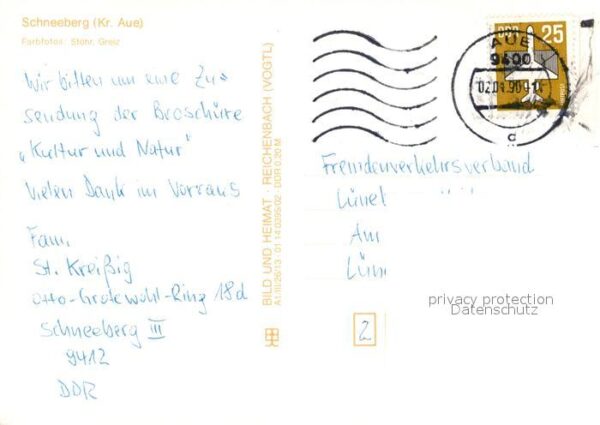 Schneeberg (Kr. Aue)
Farbfotos: Stöhr, Greiz
Wir bitten um eine Zu-
sendung der Broschüre
„Kultur und Natur"
Vielen Dank im Vorraus
Fam.
St. Kreißig
Otto-Grotewohl-Ring 18d
Schneeberg III
9412
DDR
BILD UND HEIMAT · REICHENBACH (VOGTL)
A1/III/26/13 01 14 0395/02 DDR 0,20 M
DDR 25
AUE
9400
90
d
Fremdenverkehrsverband
Lünet
Am
Lün
2
privacy protection
Datenschutz